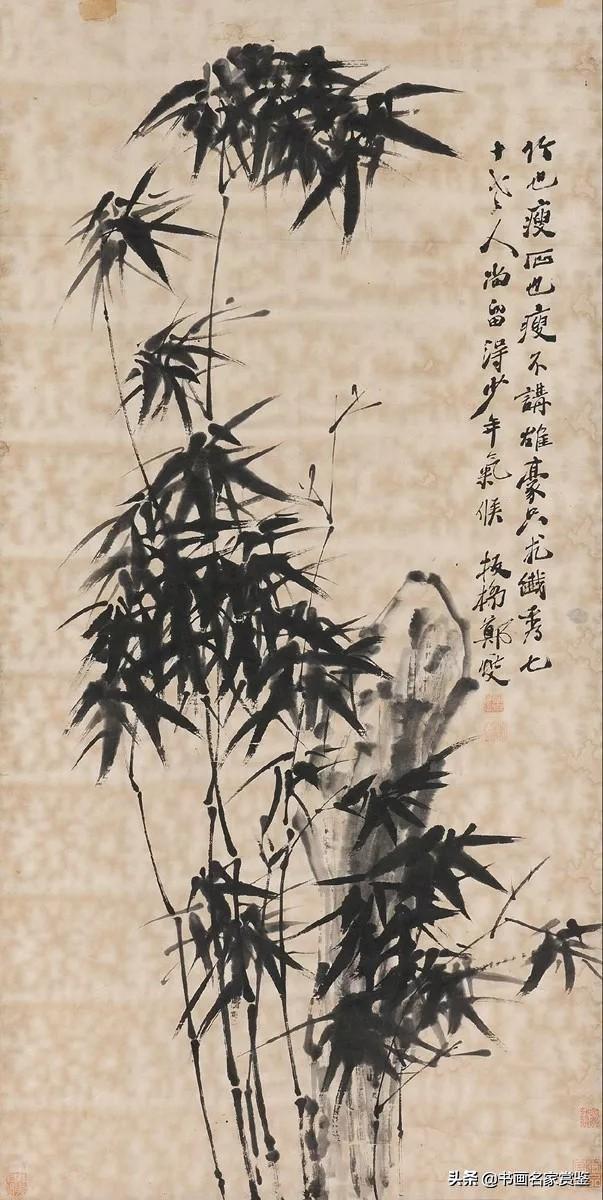 竹也瘦石也瘦不講雄豪只尤纖秀七
十老人尚留得少年氣候 板橋鄭燮
头条 @书画名家赏鉴